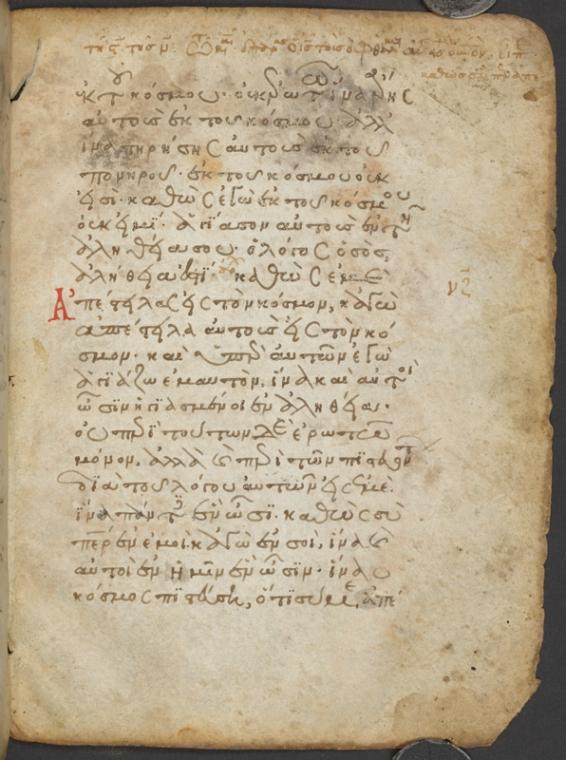 ἐκ τοῦ κόσμου· οὐκ ἐρωτῶ ἵνα ἄρης
αὐτοὺς ἐκ τοῦ κόσμου· ἀλλ'
ἵνα τηρήσης αὐτοὺς ἐκ τοῦ
πονηροῦ· ἐκ τοῦ κόσμου οὐκ
εἰσὶ· καθὼς ἐγὼ ἐκ τοῦ κόσμου
οὐκ εἰμί· ἁγίασον αὐτοὺς ἐν τῆ
ἀληθεία σου· ὁ λόγος ὁ σὸς,
ἀλήθειά ἐστι· καθὼς ἐμὲ
Ἀπέστειλας εἰς τὸν κόσμον, κἀγὼ
ἀπέστειλα αὐτοὺς εἰς τὸν κό
σμον· καὶ ὑπὲρ αὐτῶν ἐγὼ
ἁγιάζω ἐμαυτὸν, ἵνα καὶ αὐτοὶ
ὦσϊν ἡγιασμένοι ἐν ἀληθεία·
οὐ περὶ τούτων δὲ ἐρωτῶ
μόνον, ἀλλὰ καὶ περὶ τῶν
διὰ τοῦ λόγου αὐτῶν εἰς ἐμέ·
ἵνα πάντες ἓν ὦσϊ· καθὼς σὺ
πηρ ἐν ἐμοὶ κἀγὼ ἐν σοὶ, ἵνα καὶ
αὐτοὶ ἐν ἡμῖν ἓν ὦσϊν· ἵνα ὁ
κόσμος πϊστεύση, ὅτϊ σύ με ἀπέ